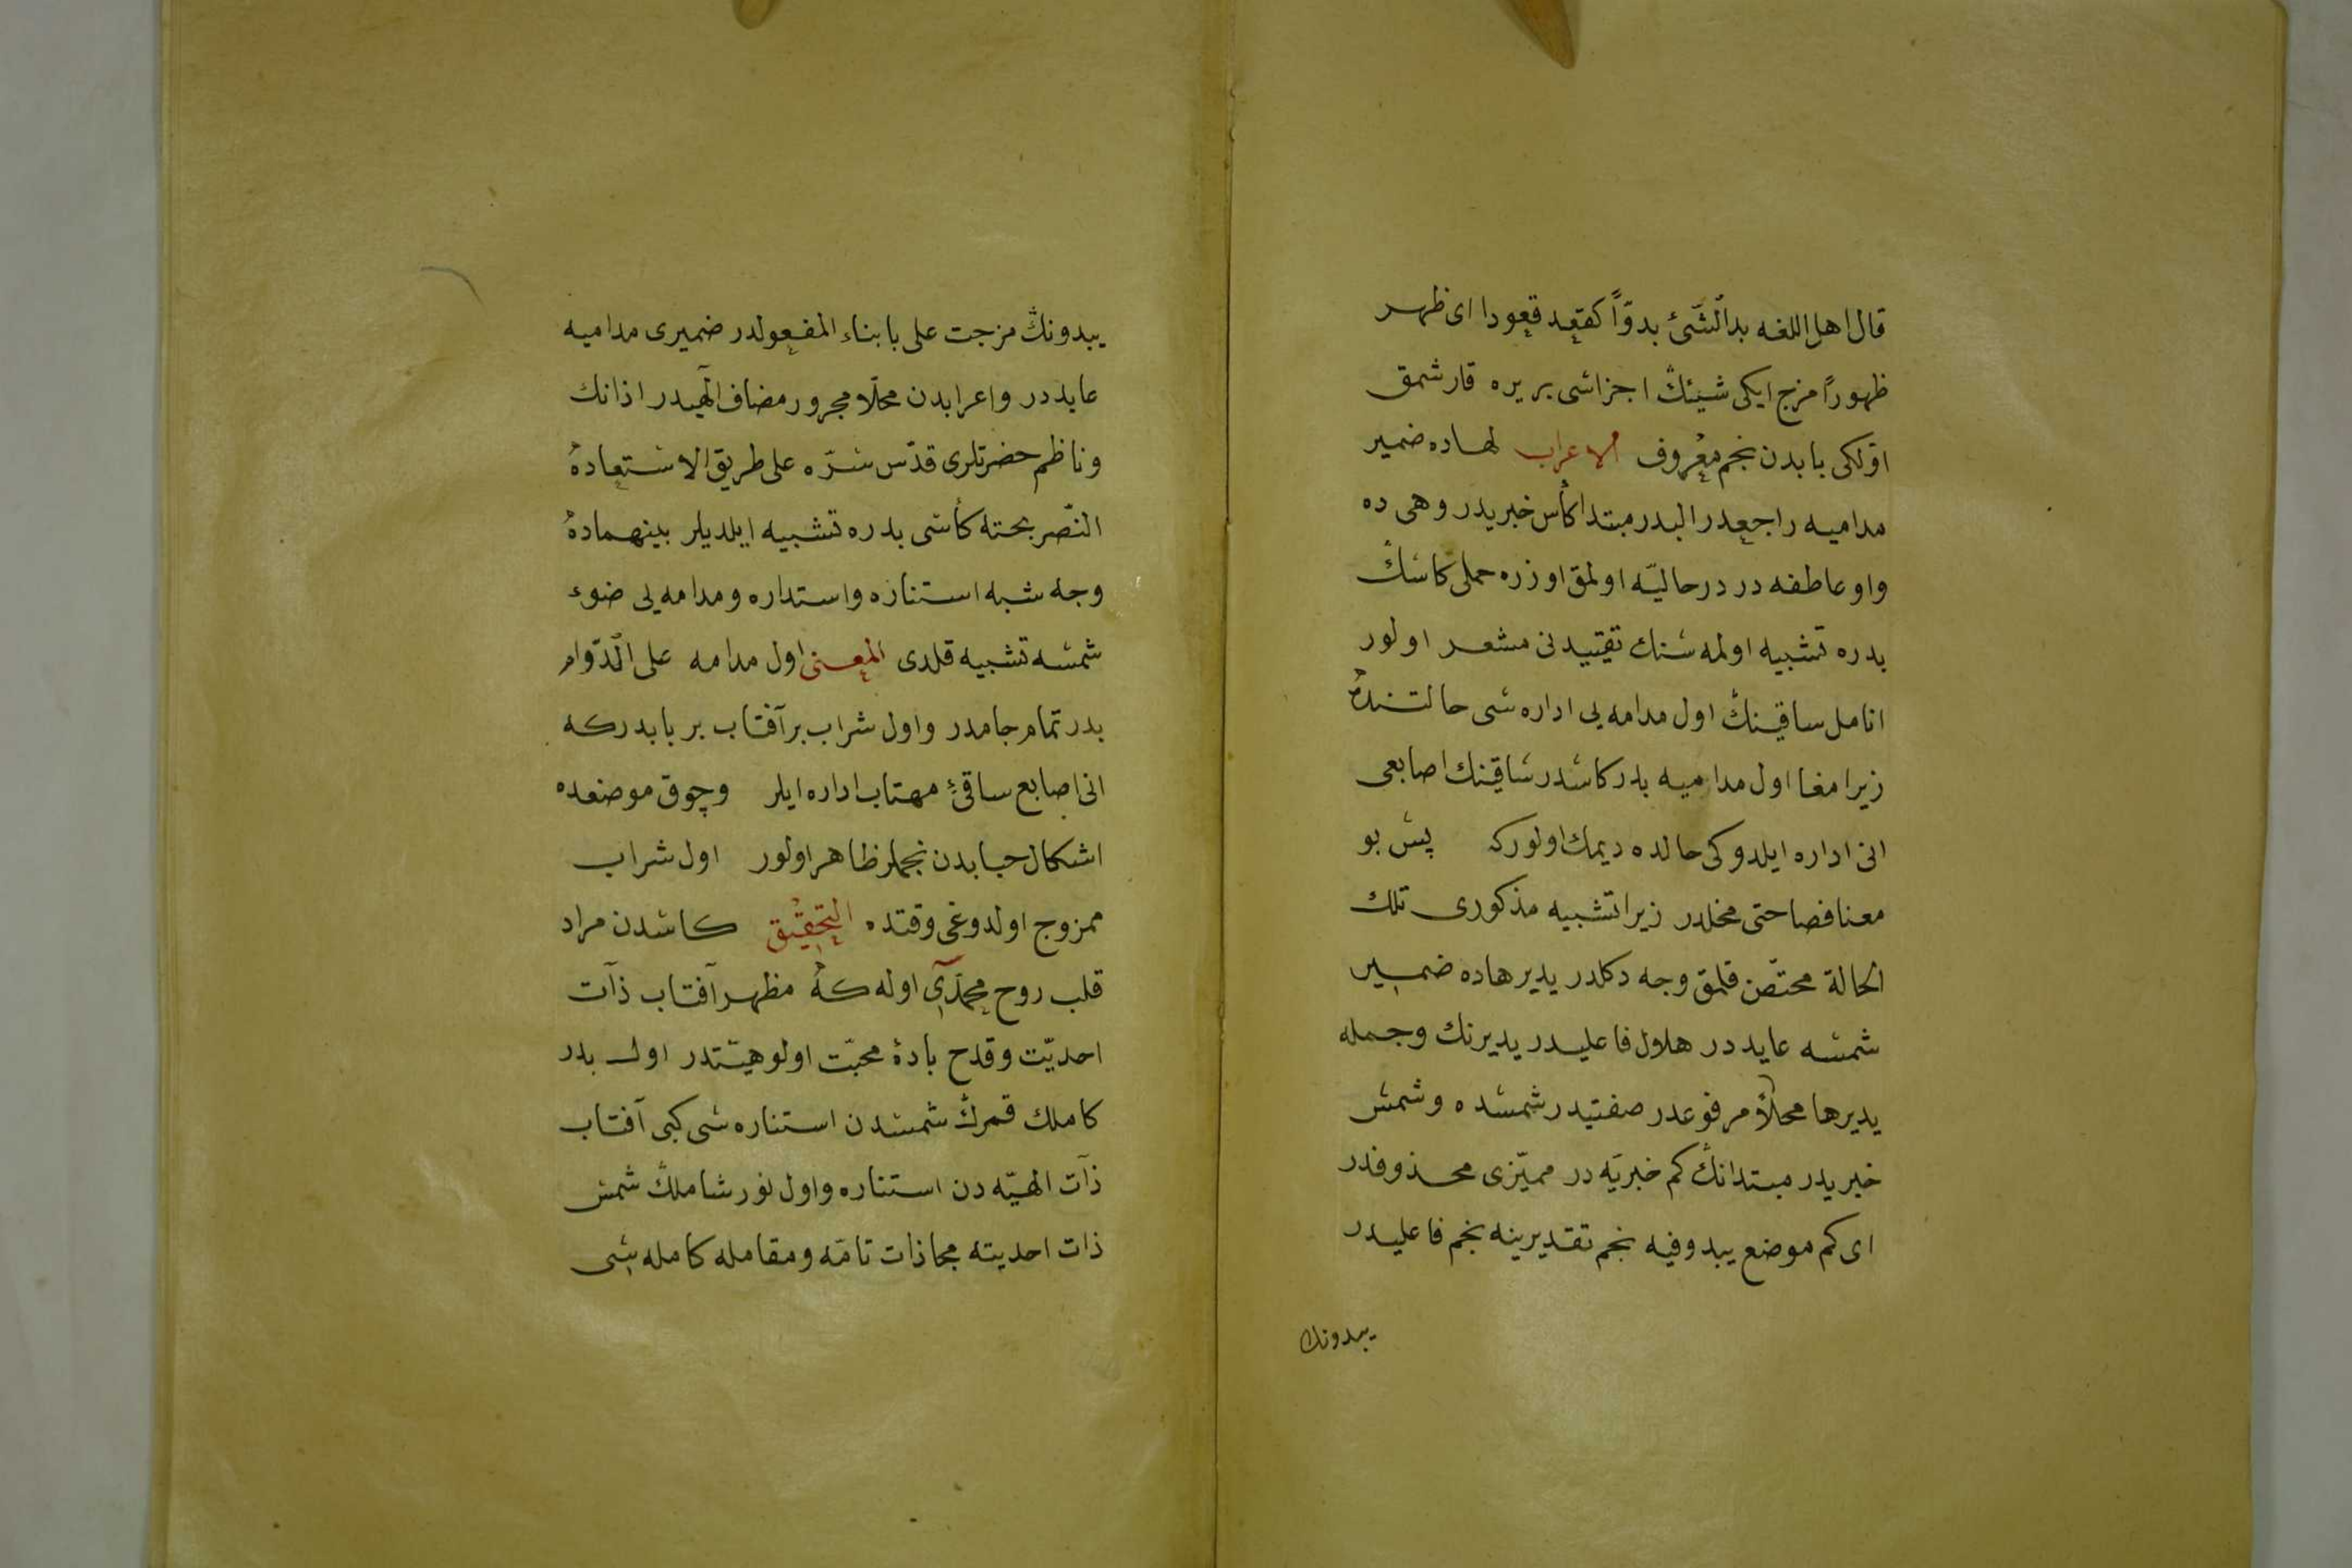 قال اهل اللغه بدا الشّئ بدوّاً كقعد قعودا اى ظهر
ظهوراً مزج ايكى شيئڭ اجزاسى بر يره قارشمق
اوّلكى بابدن نجم معروف الاعراب لهاده ضمير
مداميه راجعدر البدر مبتدا كأس خبريدر وهى ده
واو عاطفه در در حاليّه اولمق اوزره حملى كاسڭ
بدره تشبيه اولمه سنك تقييدنى مشعر اولور
انامل ساقينڭ اول مدامه يى اداره سى حالتنده
زيرا معنا اول مداميه بدر كاسدر ساقينك اصابعى
انى اداره ايلدوكى حالده ديمك اولوركه پس بو
معنا فصاحتى مخلدر زيرا تشبيه مذكورى تلك
الحالة مختصّ قلمق وجه دكلدر يديرهاده ضمير
شمسه عايد در هلال فاعليدر يديرنك وجمله
يديرها محلاً مرفوعدر صفتيدر شمسده وشمس
خبريدر مبتدانڭ كم خبريّه در مميّزى محذوفدر
اى كم موضع يبدو فيه نجم تقديرينه نجم فاعليدر
يبدونك
يبدونڭ مزجت على بابناء المفعولدر ضميرى مداميه
عايد در واعرابدن محلّا مجرور مضاف الهيدر اذانك
وناظم حضرتلرى قدّس سرّه على طريق الاستعاده
النّصر بحته كأسى بدره تشبيه ايلديلر بينهماده
وجه شبه استناره واستداره ومدامه يى ضوء
شمسه تشبيه قلدى المعنى اول مدامه على الدّوام
بدر تمام جامدر واول شراب بر آفتاب بر بابدركه
انى اصابع ساقئ مهتاب اداره ايلر وچوق موضعده
اشكال حبابدن نجملر ظاهر اولور اول شراب
ممزوج اولدوغى وقتده التحقيق كاسدن مراد
قلب روح محمّدى اوله كه مظهر آفتاب ذات
احديّت وقدح بادۀ محبّت اولوهيّتدر اول بدر
كاملك قمرڭ شمسدن استناره سى كبى آفتاب
ذات الهيّه دن استناره واول نور شاملڭ شمس
ذات احديته محاذات تامّه ومقامله كامله سى